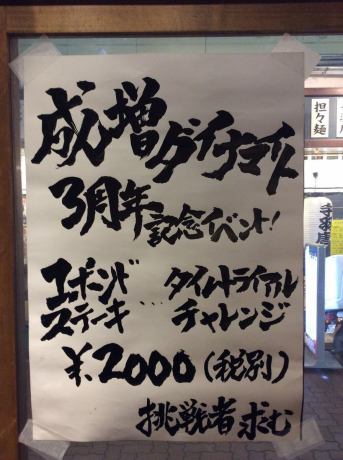 成増ダイナマイト
3周年記念イベント!
1ポンドステーキ…タイムトライアルチャレンジ
¥.2000(税別)
挑戦者求む
担々麺